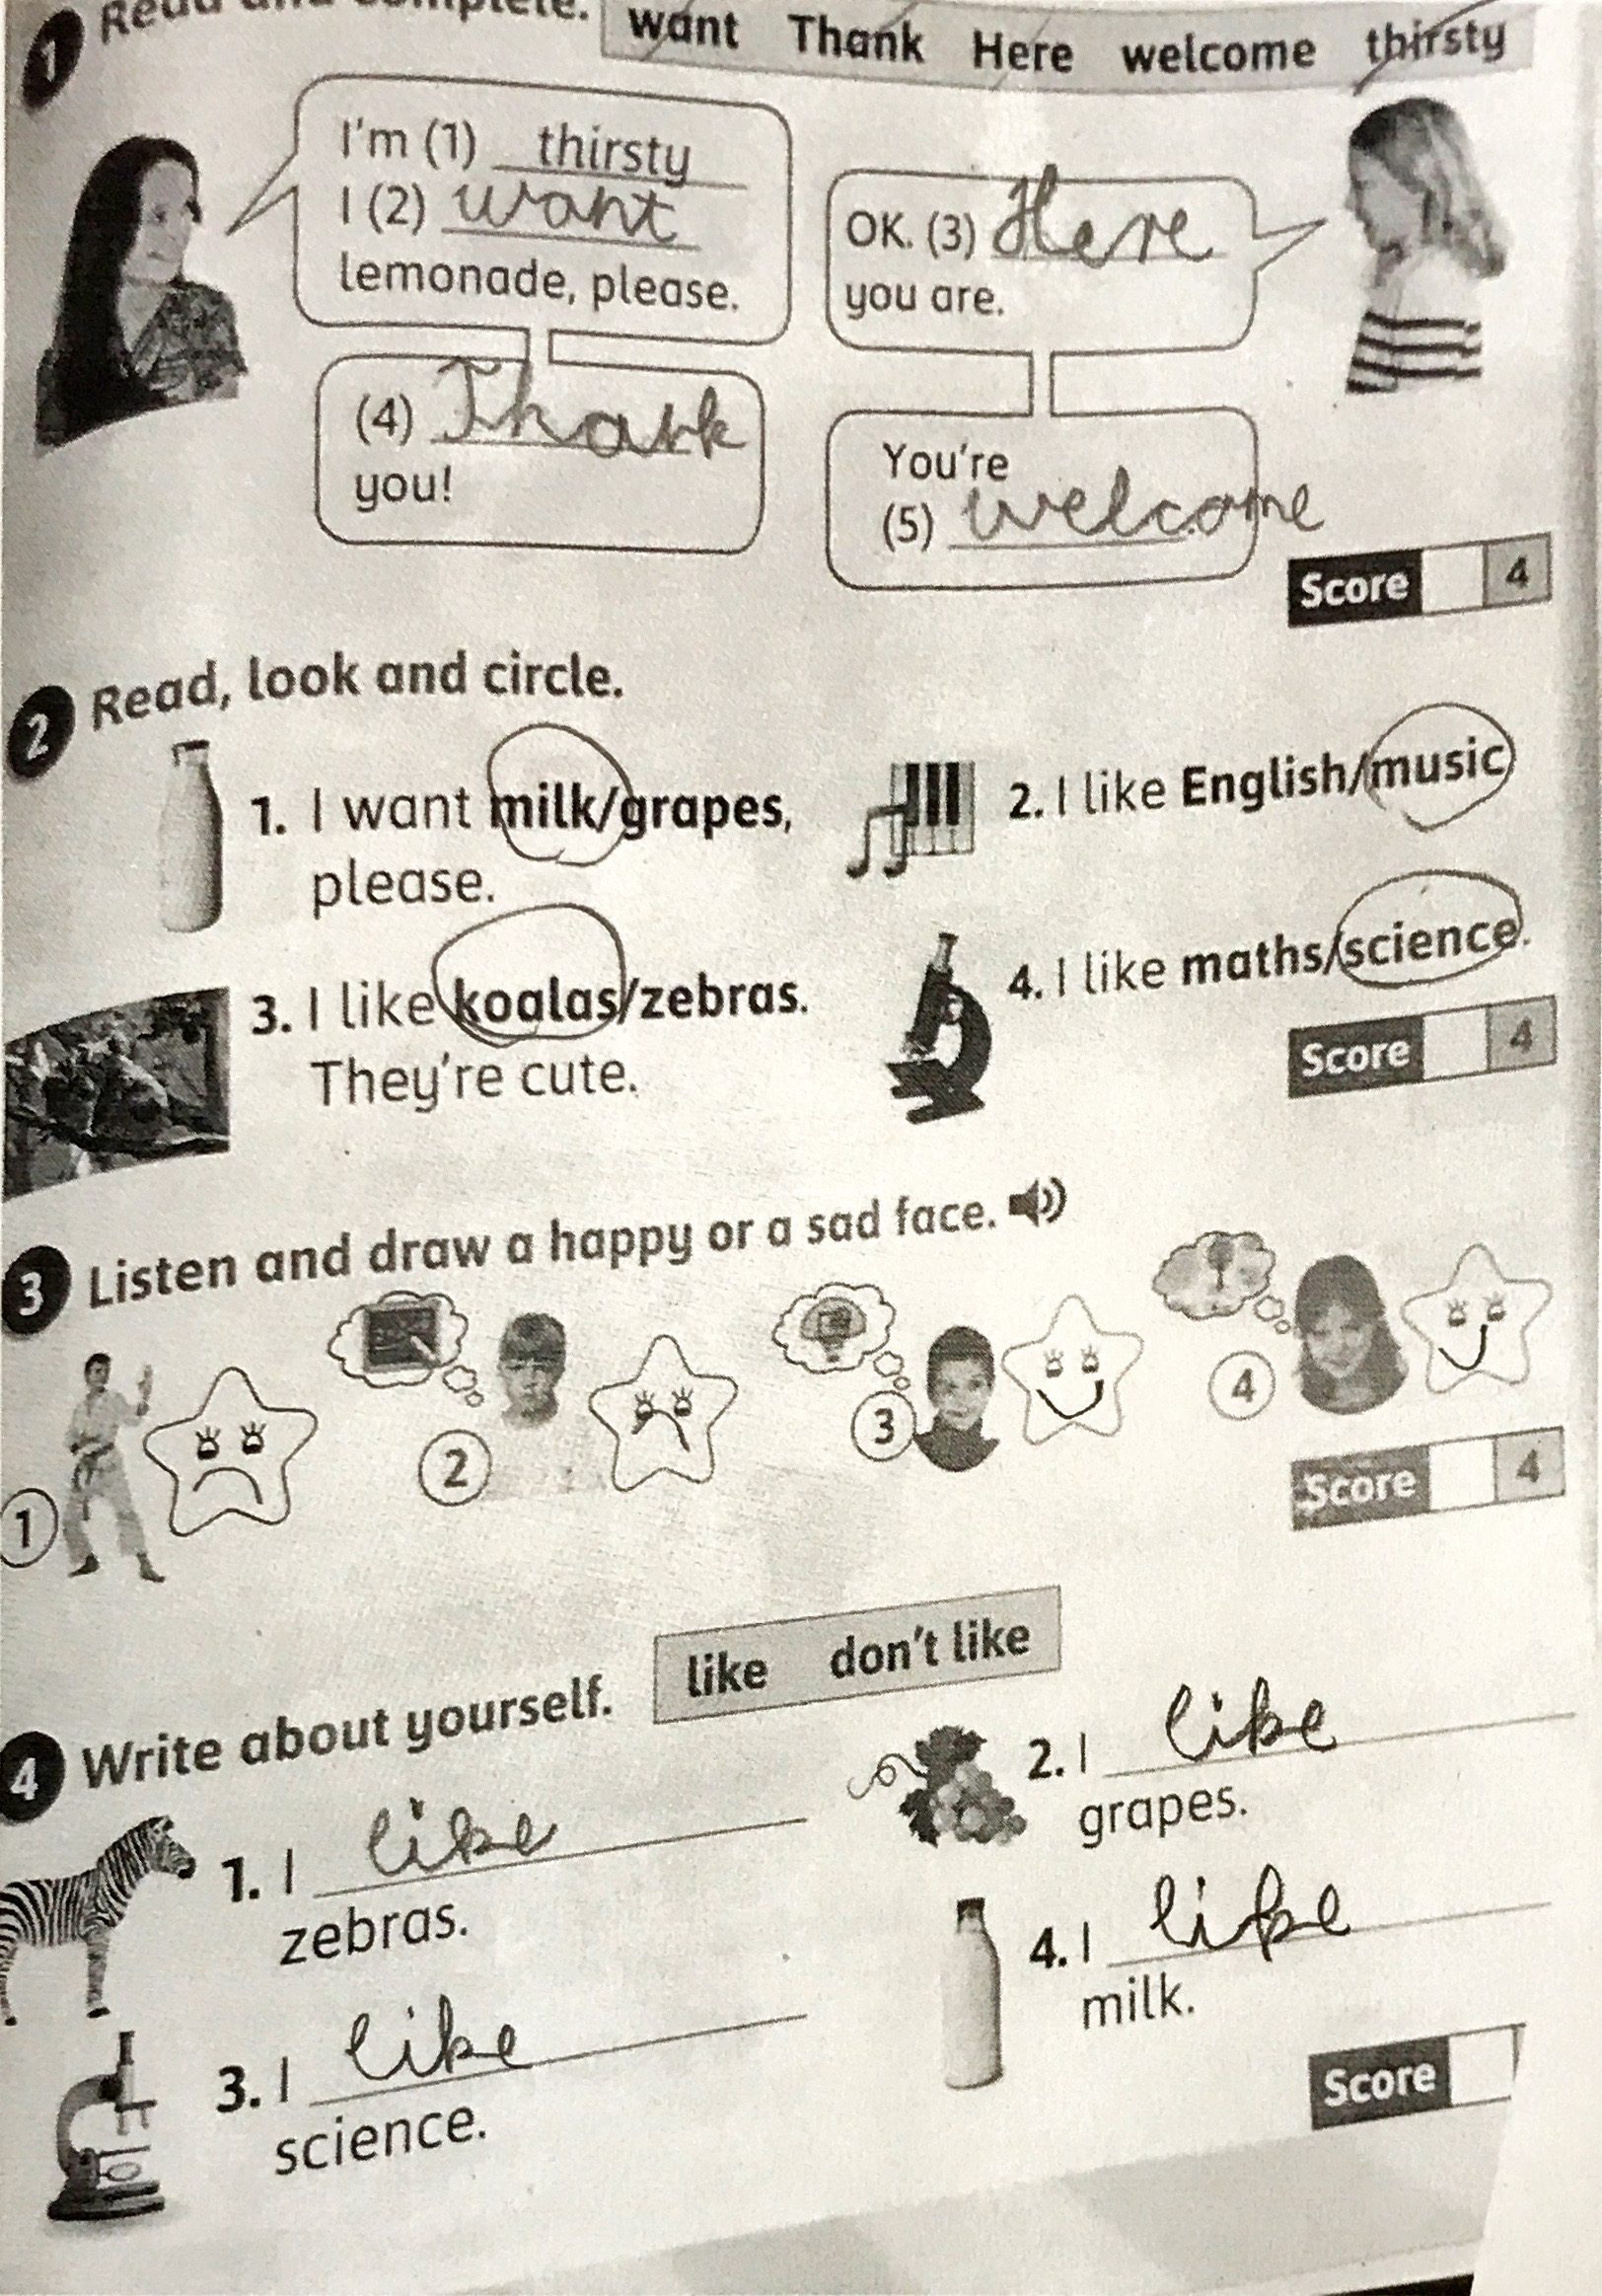 1 Read and complete.
want Thank Here welcome thirsty
I'm (1) thirsty
I (2) want
lemonade, please.
OK. (3) Here
you are.
(4) Thank
you!
You're
(5) welcome.
Score 4
2 Read, look and circle.
1. I want milk/grapes,
please.
2. I like English/music
3. I like koalas/zebras.
They're cute.
4. I like maths/science.
Score 4
3 Listen and draw a happy or a sad face.
1
2
3
4
Score 4
4 Write about yourself.
like don't like
1. I like
zebras.
2. I like
grapes.
3. I like
science.
4. I like
milk.
Score